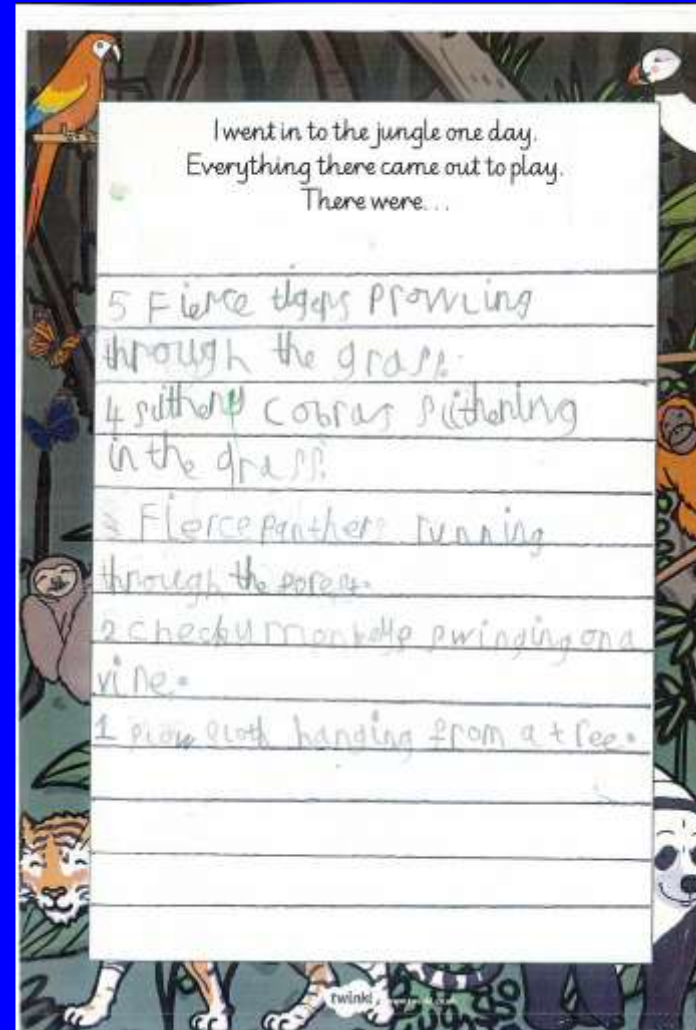 I went in to the jungle one day.
Everything there came out to play.
There were...
5 Fierce tigers prowling
through the grass.
4 slithery cobras slithering
in the grass.
3 Fierce panthers running
through the forest.
2 cheeky monkeys swinging on a
vine.
1 sloth hanging from a tree.
twinkl